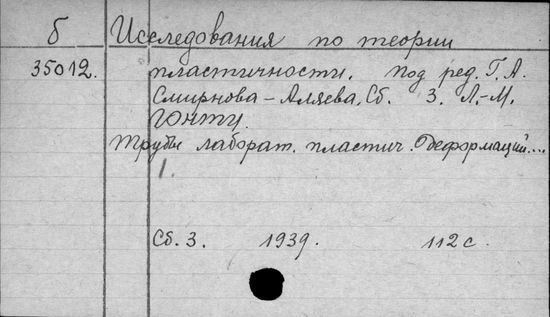 б Исследования по теории
35012. пластичности. под ред. Г. А.
Смирнова-Аляева. Сб. 3. Л.-М.
ГОНТИ.
Трубы лаборат. пластич. деформаций....
1.
Сб. 3. 1939. 112 с.